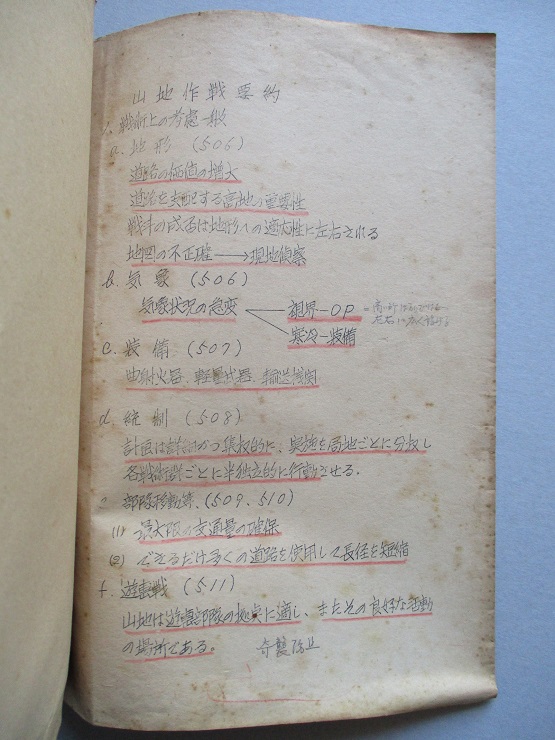 山地作戦要約
1. 戦術上の考慮一般
a. 地形 (506)
道路の価値の増大
道路を支配する高地の重要性
戦斗の成否は地形への適応性に左右される
地図の不正確→現地偵察
b. 気象 (506)
気象状況の急変 視界-OP
寒冷-装備
c. 装備 (507)
曲射火器、軽量武器、輸送機関
d. 統制 (508)
計画は詳細かつ集权的に、実施を局地ごとに分权し
各戦術群ごとに半独立的に行動させる.
e. 部隊移動等. (509、510)
(1) 最大限の交通量の確保
(2) できるだけ多くの道路を使用して長径を短縮
f. 遊撃戦 (511)
山地は遊撃部隊の拠点に適し、またその良好な活動
の場所である。 奇襲防止